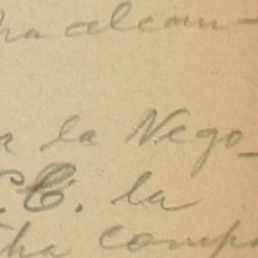 ha alcan-
a la Nego-
C. C. la
cha compa